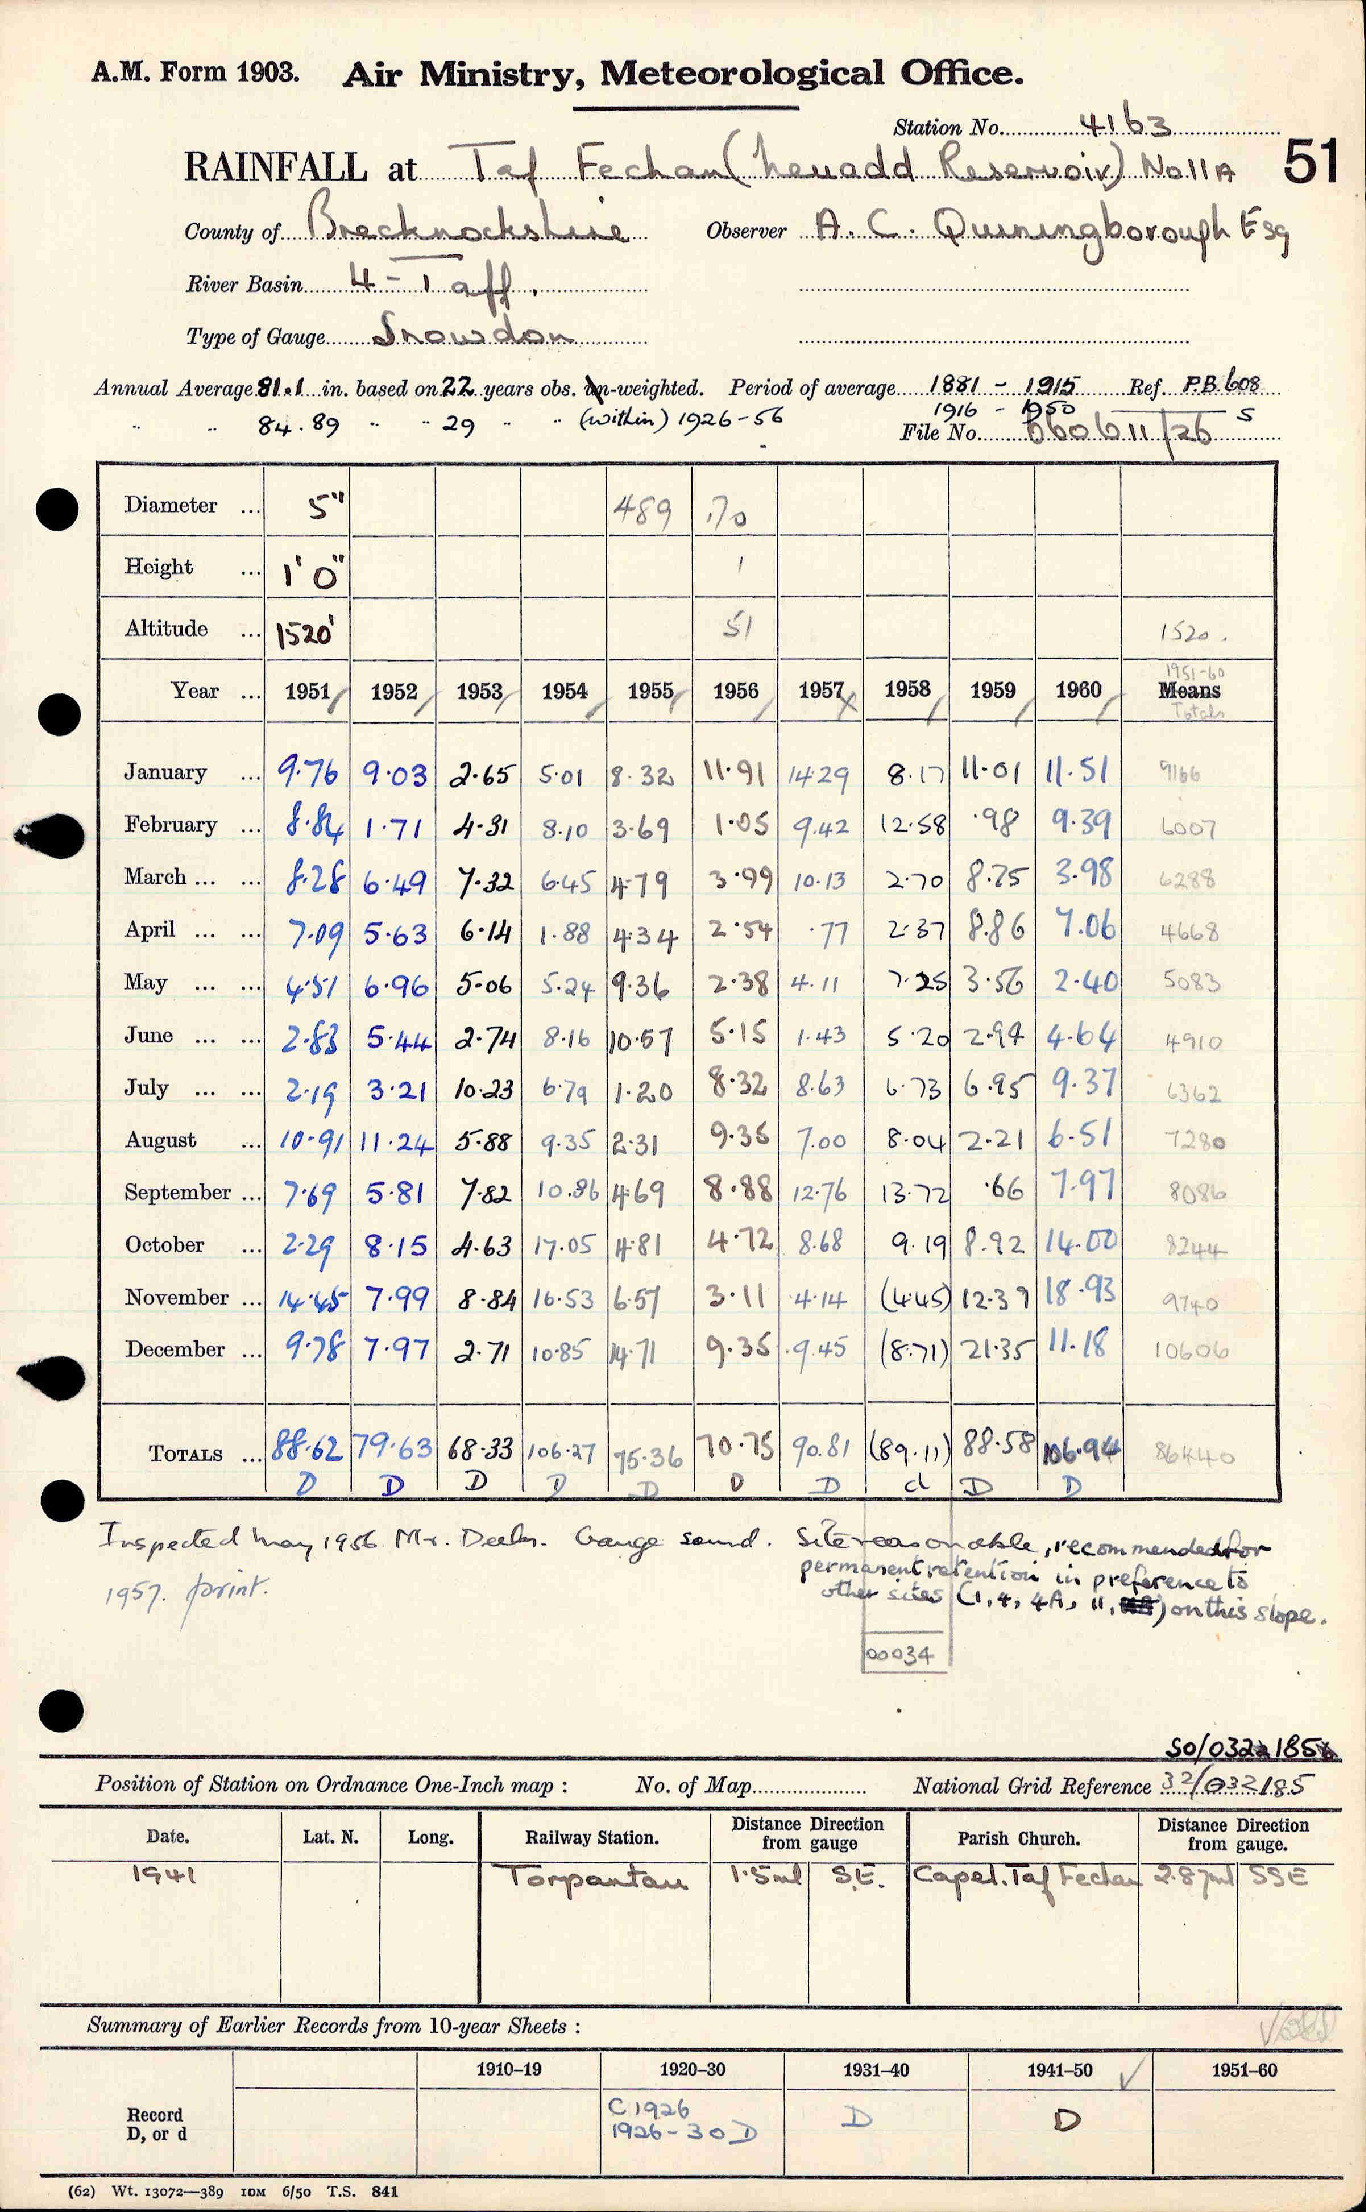 A.M. Form 1903. Air Ministry, Meteorological Office.
Station No. 4163
RAINFALL at Taf Fechan (Neuadd Reservoir) No 11A 51
County of Brecknockshire Observer A. C. Quiningborough Esq
River Basin 4 - Taff.
Type of Gauge Snowdon
Annual Average 81.1 in. based on 22 years obs. un-weighted. Period of average 1881 - 1915 Ref. P.B. 608
1916 - 1950 S
" " 84.89 " " 29 " " (within) 1926-56 File No. 660611/26
Diameter ... 5" 489 .70
Height ... 1' 0" 1
Altitude ... 1520' 51 1520.
1951-60
Year ... 1951 1952 1953 1954 1955 1956 1957 1958 1959 1960 Means
Totals
January ... 9.76 9.03 2.65 5.01 8.32 11.91 14.29 8.17 11.01 11.51 9166
February ... 8.84 1.71 4.31 8.10 3.69 1.05 9.42 12.58 .98 9.39 6007
March ... ... 8.28 6.49 7.32 6.45 4.79 3.99 10.13 2.70 8.75 3.98 6288
April ... ... 7.09 5.63 6.14 1.88 4.34 2.54 .77 2.37 8.86 7.06 4668
May ... ... 4.51 6.96 5.06 5.24 9.36 2.38 4.11 7.25 3.56 2.40 5083
June ... ... 2.83 5.44 2.74 8.16 10.57 5.15 1.43 5.20 2.94 4.64 4910
July ... ... 2.19 3.21 10.23 6.79 1.20 8.32 8.63 6.73 6.95 9.37 6362
August ... 10.91 11.24 5.88 9.35 2.31 9.36 7.00 8.04 2.21 6.51 7280
September ... 7.69 5.81 7.82 10.86 4.69 8.88 12.76 13.72 .66 7.97 8086
October ... 2.29 8.15 4.63 17.05 4.81 4.72 8.68 9.19 8.92 14.00 8244
November ... 14.45 7.99 8.84 16.53 6.57 3.11 4.14 (4.45) 12.39 18.93 9740
December ... 9.78 7.97 2.71 10.85 14.71 9.35 9.45 (8.71) 21.35 11.18 10606
TOTALS ... 88.62 79.63 68.33 106.27 75.36 70.75 90.81 (89.11) 88.58 106.94 86440
D D D D D D D d D D
Inspected May 1956 Mr. Gauge sound. Site reasonable, recommended for
permanent retention in preference to
other sites (1, 4, 4A, 11, ) on this slope.
1957. print.
00034
SO/032 185
Position of Station on Ordnance One-Inch map : No. of Map National Grid Reference 32/032185
Date. Lat. N. Long. Railway Station. Distance Direction from gauge Parish Church. Distance Direction from gauge.
1941 Torpantau 1.5ml S.E. Capel. Taf Fechan 2.87ml SSE
Summary of Earlier Records from 10-year Sheets :
1910–19 1920–30 1931–40 1941–50 1951–60
Record D, or d C1926 1926-30 D D D
(62) Wt. 13072—389 10M 6/50 T.S. 841